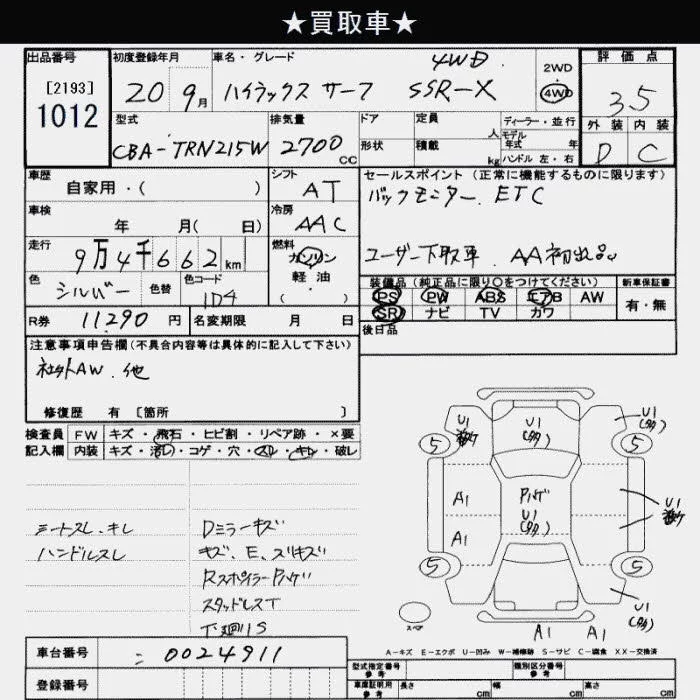 ★買取車★
出品番号
[2193]
1012
初度登録年月
20 9月
車名・グレード
ハイラックス サーフ SSR-X
4WD
2WD
・
4WD
評価点
3.5
外装 内装
D C
型式
CBA-TRN215W
排気量
2700 CC
ドア
形状
定員
人
積載
kg
ディーラー・並行
モデル
年式 年
ハンドル 左・右
車歴
自家用・( )
シフト
AT
セールスポイント (正常に機能するものに限ります)
バックモニター. ETC
ユーザー下取車. AA初出品
車検
年 月( 日)
冷房
AAC
走行
9万4千662 km
燃料
ガソリン
軽・油
( ・ )
色
シルバー
色替
色コード
1D4
装備品 (純正品に限り〇をつけてください)
PS PW ABS エアB AW
SR ナビ TV カワ
新車保証書
有・無
R券 11290 円
名変期限 月 日
後日品
注意事項申告欄(不具合内容等は具体的に記入して下さい)
社外AW. 他
修復歴 有 [箇所 ]
検査員
記入欄
FW キズ・飛石・ヒビ割・リペア跡・×要
内装 キズ・汚れ・コゲ・穴・スレ・キレ・破レ
シートスレ.キレ
ハンドルスレ
Dミラーキズ
キズ、E、スリキズ
RスポイラーPハゲ
スタッドレスT
下廻りS
U1
U1
(タタ)
U1
(タタ)
5
5
A1
Pハゲ
U1
(タタ)
U1
A1
5
5
U1
(タタ)
スペア
A1
A1
A-キズ E-エクボ U-凹み W-補修跡 S-サビ C-腐食 XX-交換済
車台番号
0024911
登録番号
型式指定番号
参考
類別区分番号
参考
車庫証明用
参考
長さ cm
幅 cm
高さ cm